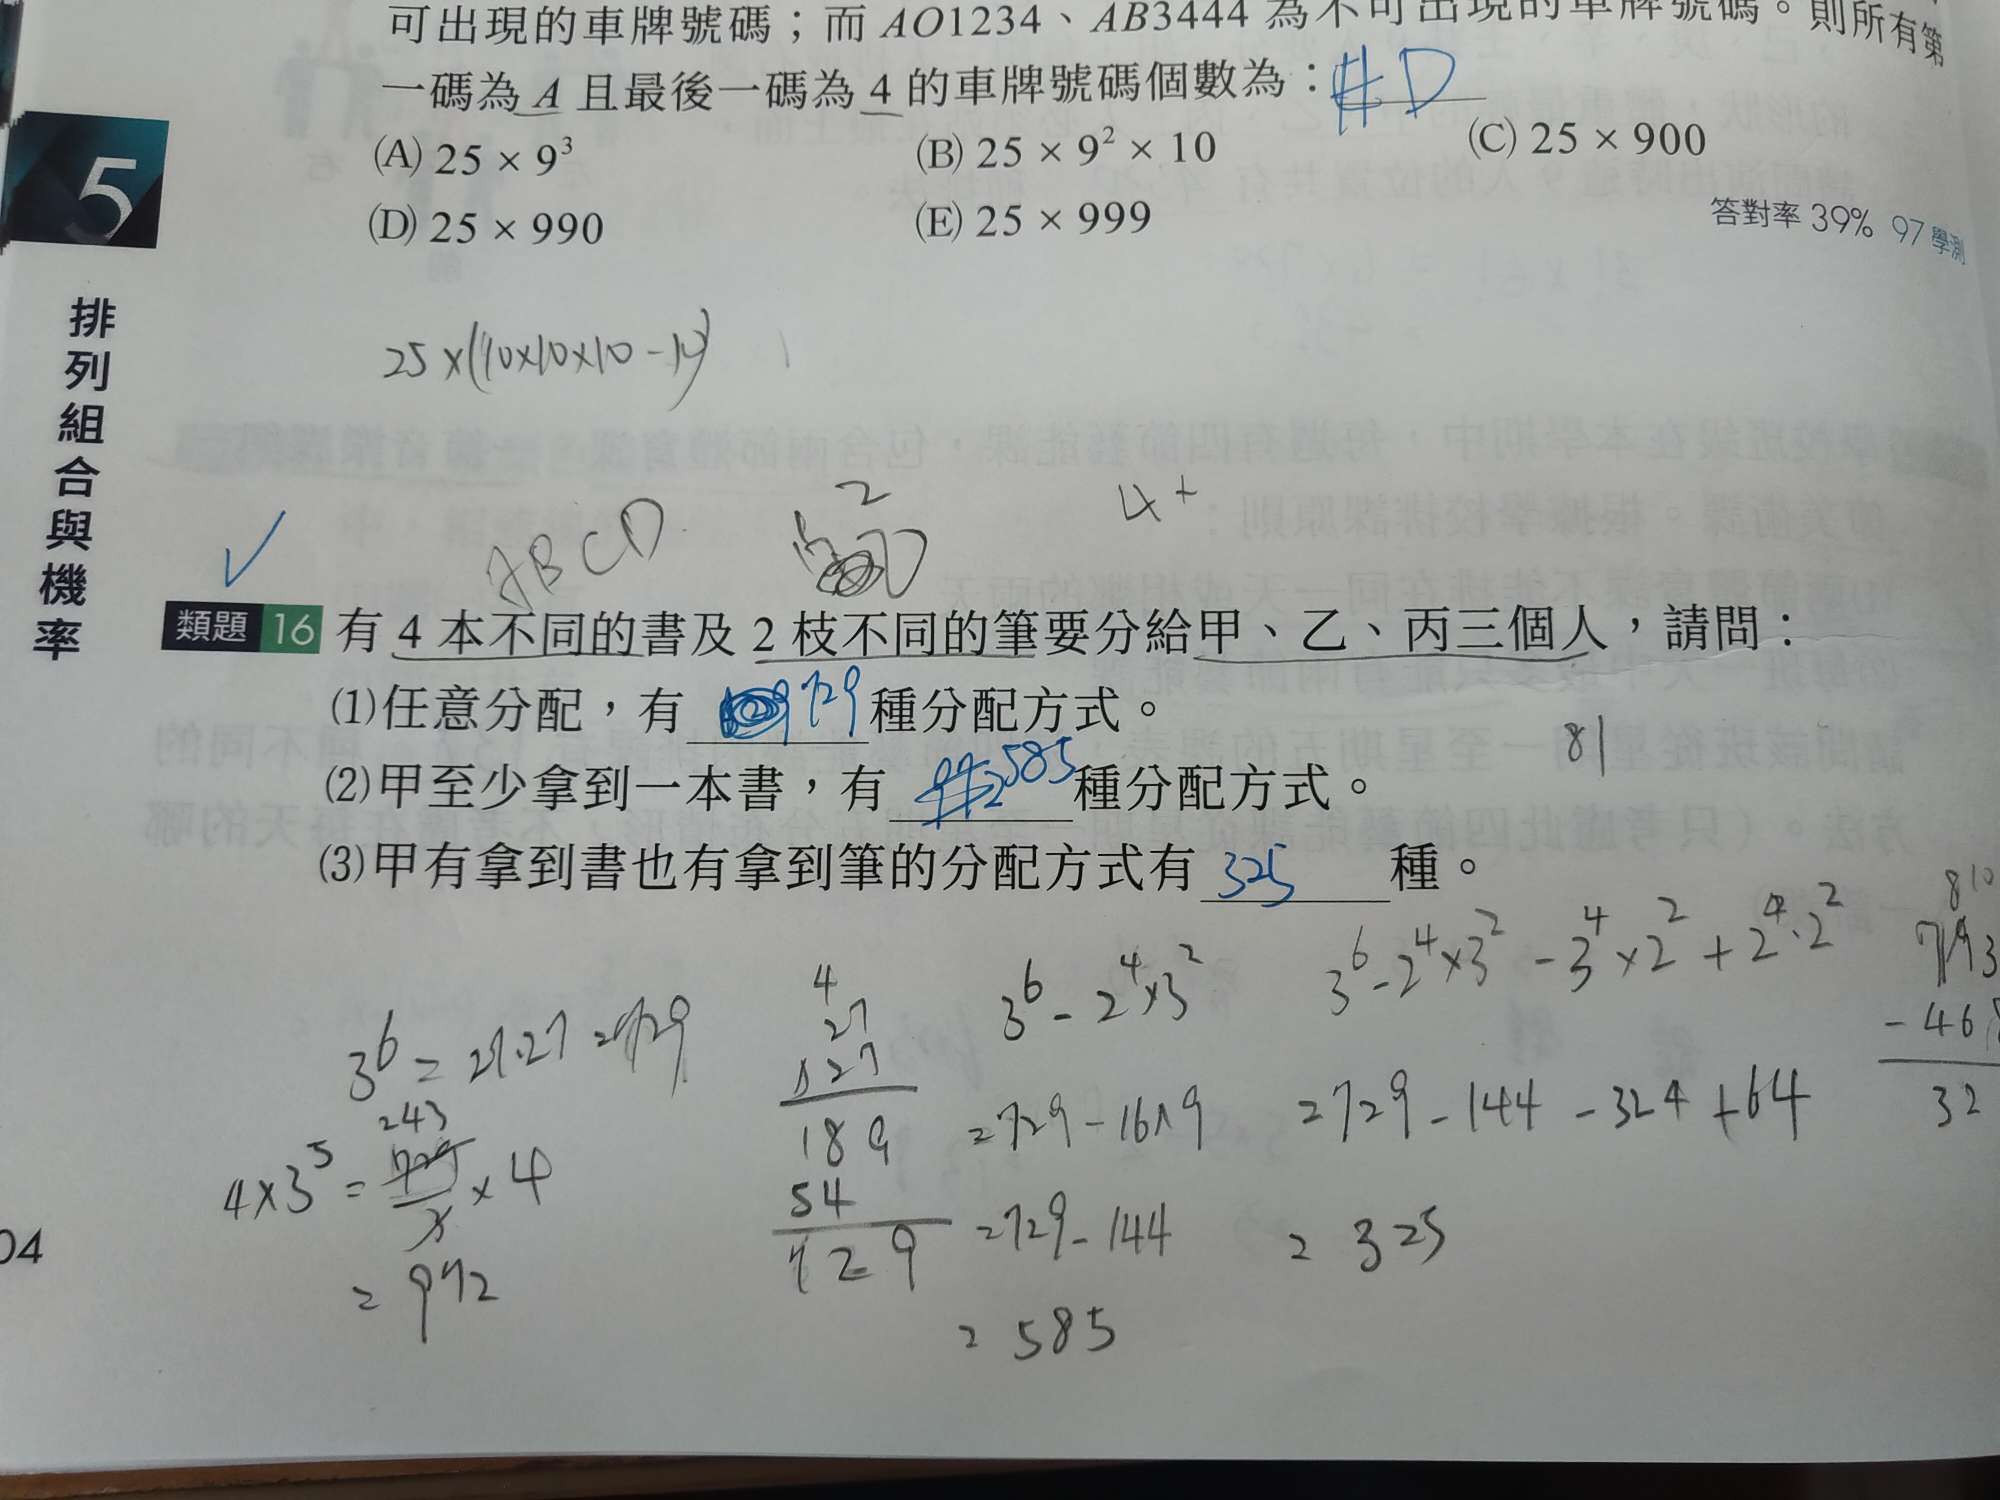 可出現的車牌號碼；而 AO1234、AB3444 為不可出現的車牌號碼。則所有第
一碼為 A 且最後一碼為 4 的車牌號碼個數為：D
(A) 25 × 9³ (B) 25 × 9² × 10 (C) 25 × 900
(D) 25 × 990 (E) 25 × 999
答對率 39% 97 學測
5
排列組合與機率
25×(10×10×10-10)
ABCD 2 4+
類題 16 有 4 本不同的書及 2 枝不同的筆要分給甲、乙、丙三個人，請問：
(1)任意分配，有 729 種分配方式。
81
(2)甲至少拿到一本書，有 585 種分配方式。
(3)甲有拿到書也有拿到筆的分配方式有 325 種。
3⁶=27·27=729
243
4×3⁵=729/3×4
=972
4
27
×27
189
54
729
3⁶-2⁴×3²
=729-16×9
=729-144
=585
3⁶-2⁴×3²-3⁴×2²+2⁴·2²
=729-144-324+64
=325
810
793
-468
32
04